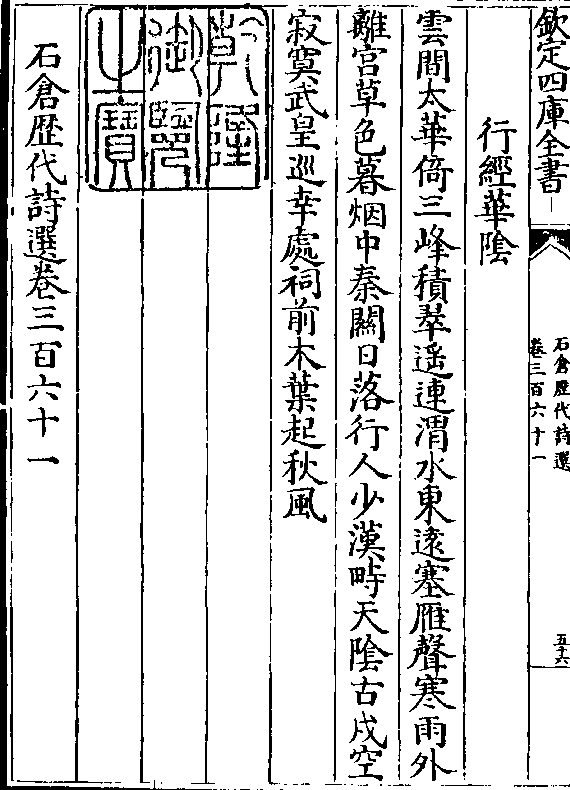 欽定四庫全書
石倉歴代詩選
卷三百六十一
五十六
行經華隂
雲間太華倚三峰積翠遥連渭水東逺塞雁聲寒雨外
離宫草色暮烟中秦關日落行人少漢畤天隂古戍空
寂寞武皇巡幸處祠前木葉起秋風
乾隆御覽之寶
石倉歴代詩選卷三百六十一